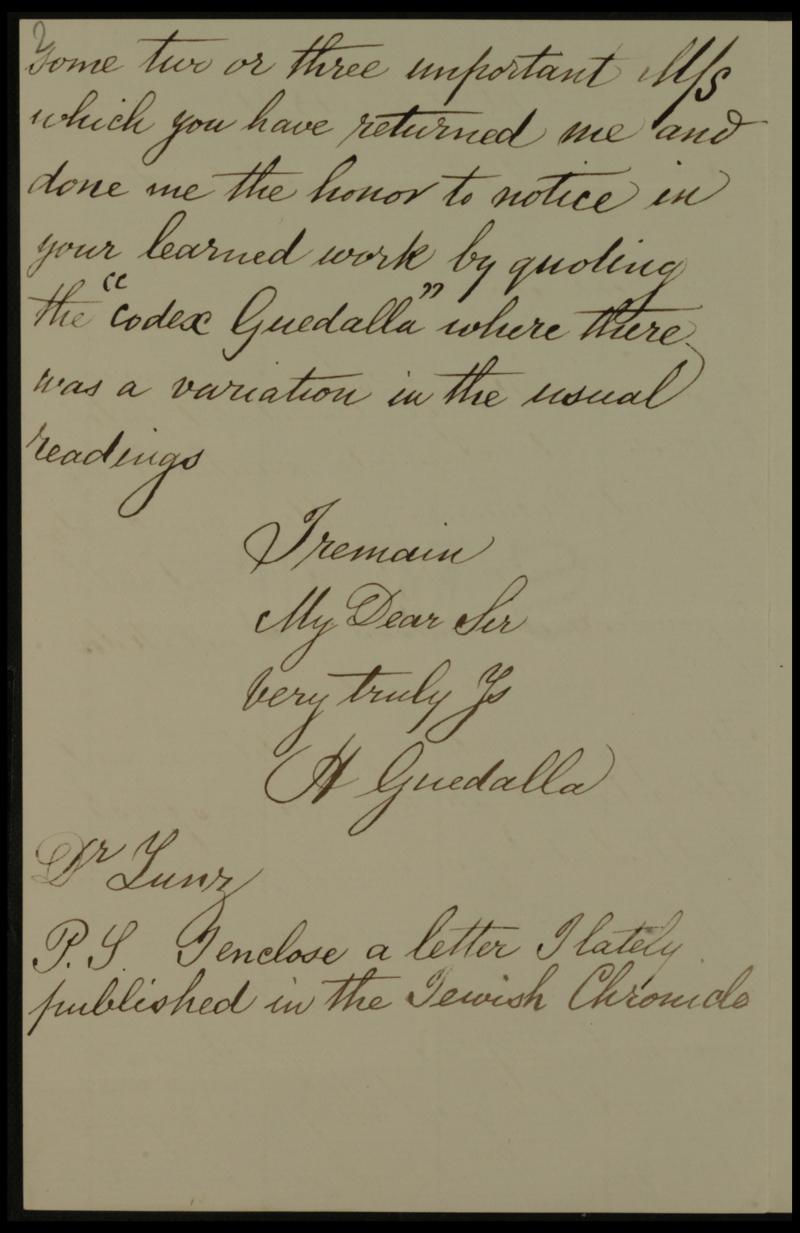 2
Some two or three important M/s
which you have returned me and
done me the honor to notice in
your learned work by quoting
the "Codex Guedalla" where there
was a variation in the usual
readings
I remain
My Dear Sir
very truly Ys
H Guedalla
Dr Zunz
P.S. I enclose a letter I lately
published in the Jewish Chronicle